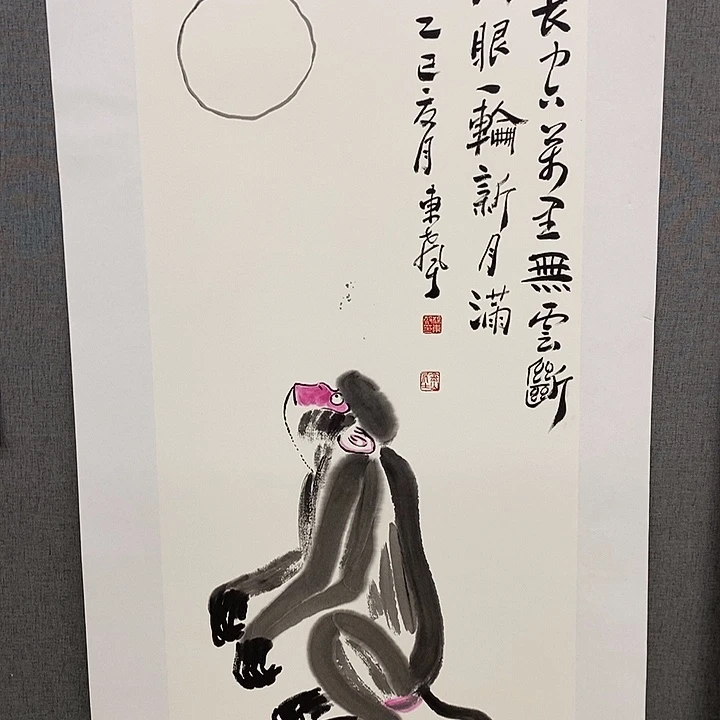 長空萬里無雲斷
眼一輪新月滿
乙巳亥月東